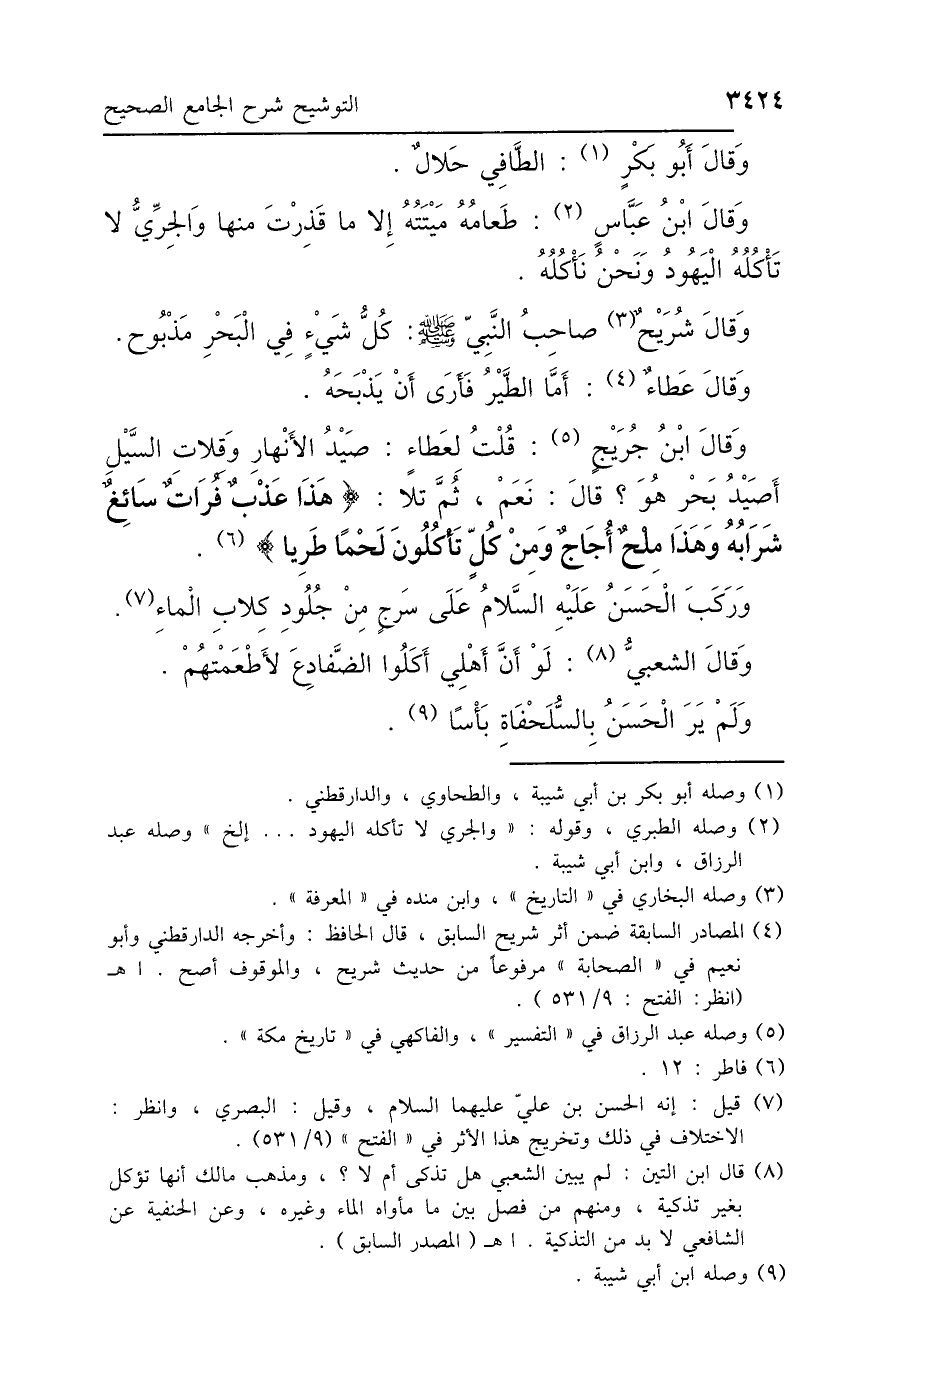 ٣٤٢٤
التوشيح شرح الجامع الصحيح
وَقالَ أَبُو بَكْرٍ (١) : الطَّافِي حَلالٌ .
وَقالَ ابْنُ عَبَّاسٍ (٢) : طَعامُهُ مَيْتَتُهُ إِلا ما قَذِرْتَ منها وَالجِرِّيُّ لا
تَأْكُلُهُ الْيَهُودُ وَنَحْنُ نَأْكُلُهُ .
وَقالَ شُرَيْحٌ(٣) صاحِبُ النَّبِيّ ﷺ: كُلُّ شَيْءٍ فِي الْبَحْرِ مَذْبُوح.
وَقالَ عَطاءٌ (٤) : أَمَّا الطَّيْرُ فَأَرَى أَنْ يَذْبَحَهُ .
وَقالَ ابْنُ جُرَيْجٍ (٥) : قُلْتُ لعَطاءٍ : صَيْدُ الأَنْهارِ وَقِلات السَّيْلِ
أَصَيْدُ بَحْر هُوَ ؟ قالَ : نَعَمْ ، ثُمَّ تلا : ﴿ هَذَا عَذْبٌ فُرَاتٌ سَائِغٌ
شَرَابُهُ وَهَذَا مِلْحٌ أُجَاجٌ وَمِنْ كُلٍّ تَأْكُلُونَ لَحْمًا طَرِيا ﴾ (٦) .
وَرَكَبَ الْحَسَنُ عَلَيْهِ السَّلامُ عَلَى سَرَجٍ مِنْ جُلُودِ كِلابِ الْماءِ(٧).
وَقالَ الشعبيُّ (٨) : لَوْ أَنَّ أَهْلِي أَكَلُوا الضَّفادِعَ لأَطْعَمْتهُمْ .
وَلَمْ يَرَ الْحَسَنُ بِالسُّلَحْفَاةِ بَأْسًا (٩) .
(١) وصله أبو بكر بن أبي شيبة ، والطحاوي ، والدارقطني .
(٢) وصله الطبري ، وقوله : « والجري لا تأكله اليهود ... إلخ » وصله عبد
الرزاق ، وابن أبي شيبة .
(٣) وصله البخاري في « التاريخ » ، وابن منده في « المعرفة » .
(٤) المصادر السابقة ضمن أثر شريح السابق ، قال الحافظ : وأخرجه الدارقطني وأبو
نعيم في « الصحابة » مرفوعاً من حديث شريح ، والموقوف أصح . ا هـ
(انظر: الفتح : ٥٣١/٩ ) .
(٥) وصله عبد الرزاق في « التفسير » ، والفاكهي في « تاريخ مكة » .
(٦) فاطر : ١٢ .
(٧) قيل : إنه الحسن بن عليّ عليهما السلام ، وقيل : البصري ، وانظر :
الاختلاف في ذلك وتخريج هذا الأثر في « الفتح » (٥٣١/٩) .
(٨) قال ابن التين : لم يبين الشعبي هل تذكى أم لا ؟ ، ومذهب مالك أنها تؤكل
بغير تذكية ، ومنهم من فصل بين ما مأواه الماء وغيره ، وعن الحنفية عن
الشافعي لا بد من التذكية . ا هـ ( المصدر السابق ) .
(٩) وصله ابن أبي شيبة .